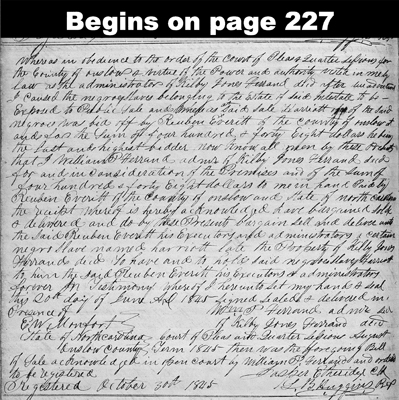 Begins on page 227
Whereas in obedience to the order of the Court of Pleas & Quarter Sessions for
the County of Onslow & virtue of the Power and authority vested in me by
law as the administrator of Kilby Jones Ferrand decd after
I caused the negro slaves belonging to the Estate of said intestate to be
Exposed to Public Sale and at said Sale Harriett of the said
negroes was bid off by Reuben Everitt of the County of Onslow
and for the Sum of four hundred & forty Eight dollars he being
the last and highest bidder now Know all men by these Presents
that I William P Ferrand admr of Kilby Jones Ferrand decd
for and in consideration of the Premises and of the Sum of
four hundred & forty Eight dollars to me in hand Paid by
Reuben Everitt of the County of onslow and State of north carolina
the receipt whereof is hereby acknowledged have bargained Sold
& delivered and do by these Present bargain Sell and deliver unto
the Said Reuben Everitt his Executors and administrators a certain
negro Slave named harriott late the Property of Kilby Jones
Ferrand decd To have and to hold said negro Slave Harriott
to him the Said Reuben Everitt his Executors & administrators
forever In Testimony whereof I hereunto Set my hand & seal
this 20th day of June AD 1845 Signed Sealed & delivered in
Presence of Wm P Ferrand admr
E W Montfort of Kilby Jones Ferrand decd
State of North carolina Court of Pleas and Quarter Sessions August
Onslow County Term 1845 then was the foregoing Bill
of Sale acknowledged in open Court by William P Ferrand and ordered
to be registered Jasper Etheridge Clk
Registered October 30th 1845